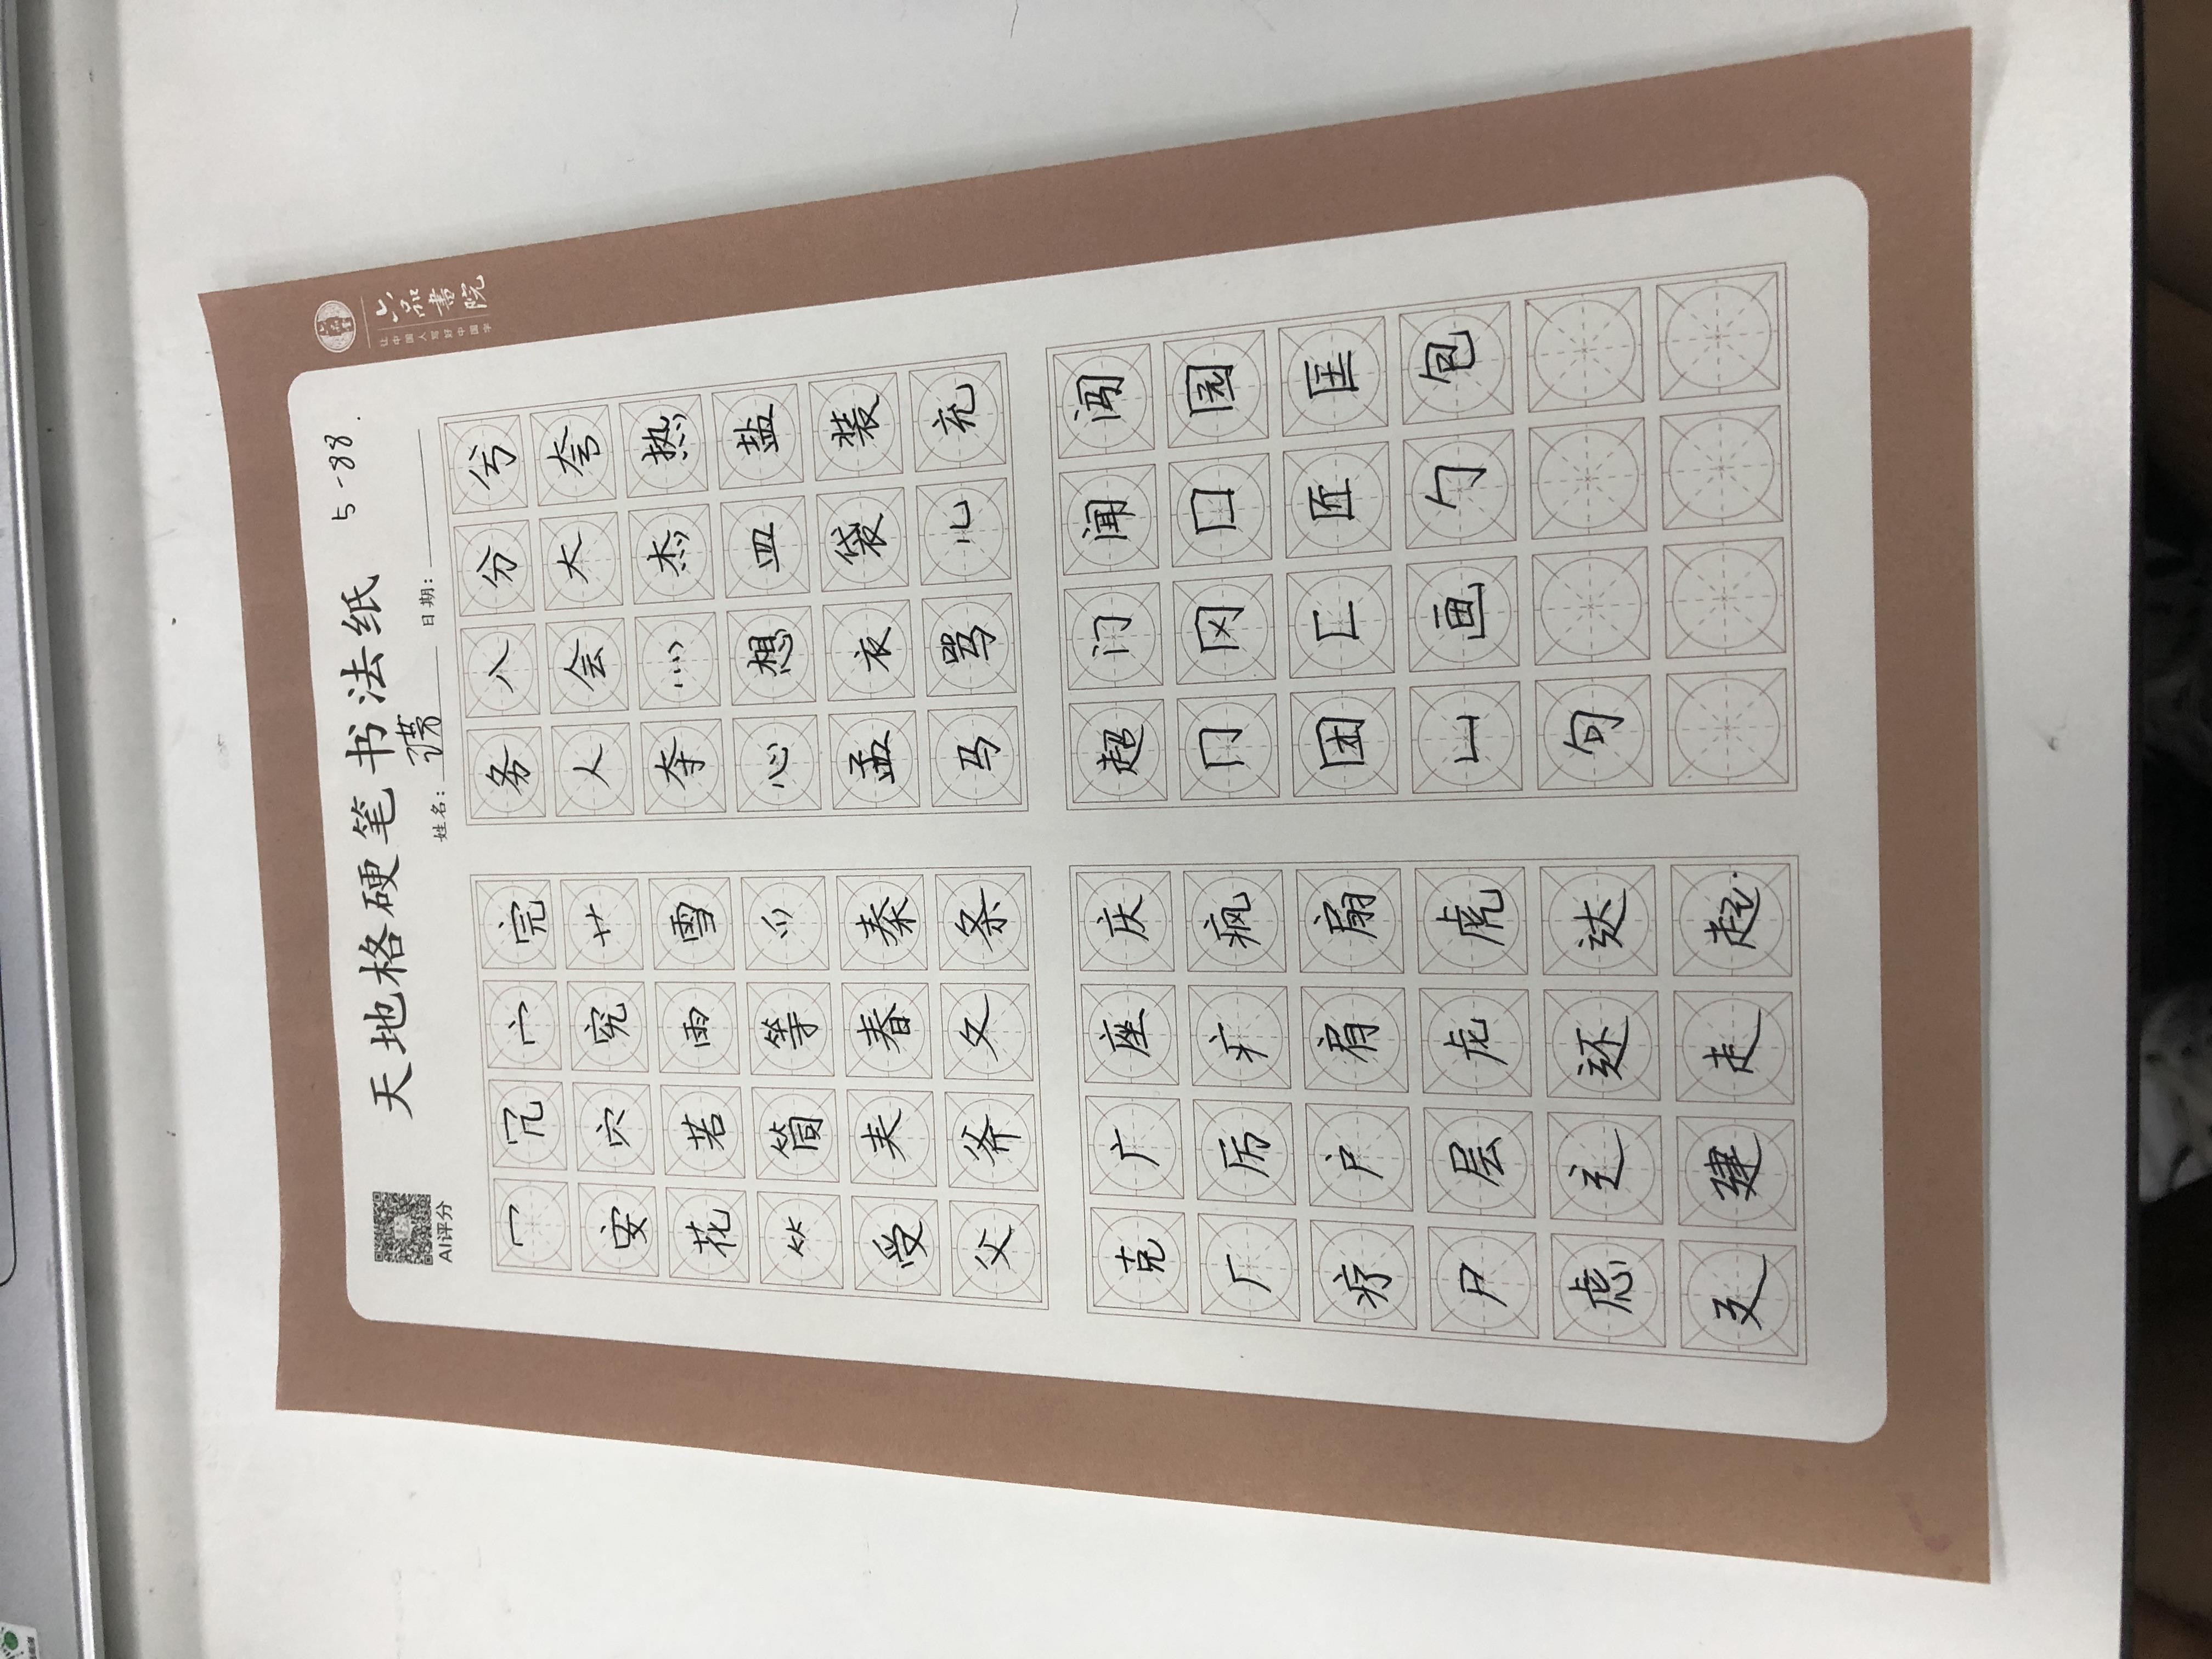 5-88.
天地格硬笔书法纸
AI评分
姓名:
日期:
六品書院
让中国人写好中国字
冖 冗 宀 完
安 穴 究 艹
花 若 雨 雪
⺮ 筒 等 爫
受 𡗗 春 秦
父 斧 夂 条
务 八 分 兮
人 会 大 夸
夺 灬 杰 热
心 想 皿 盐
孟 衣 袋 装
马 骂 儿 充
克 广 座 庆
厂 厉 疒 疯
疗 户 肩 扇
尸 层 虍 虎
虑 辶 还 达
廴 建 走 起
超 门 闻 闯
冂 冈 囗 园
团 匚 匠 匡
凵 画 勹 包
句